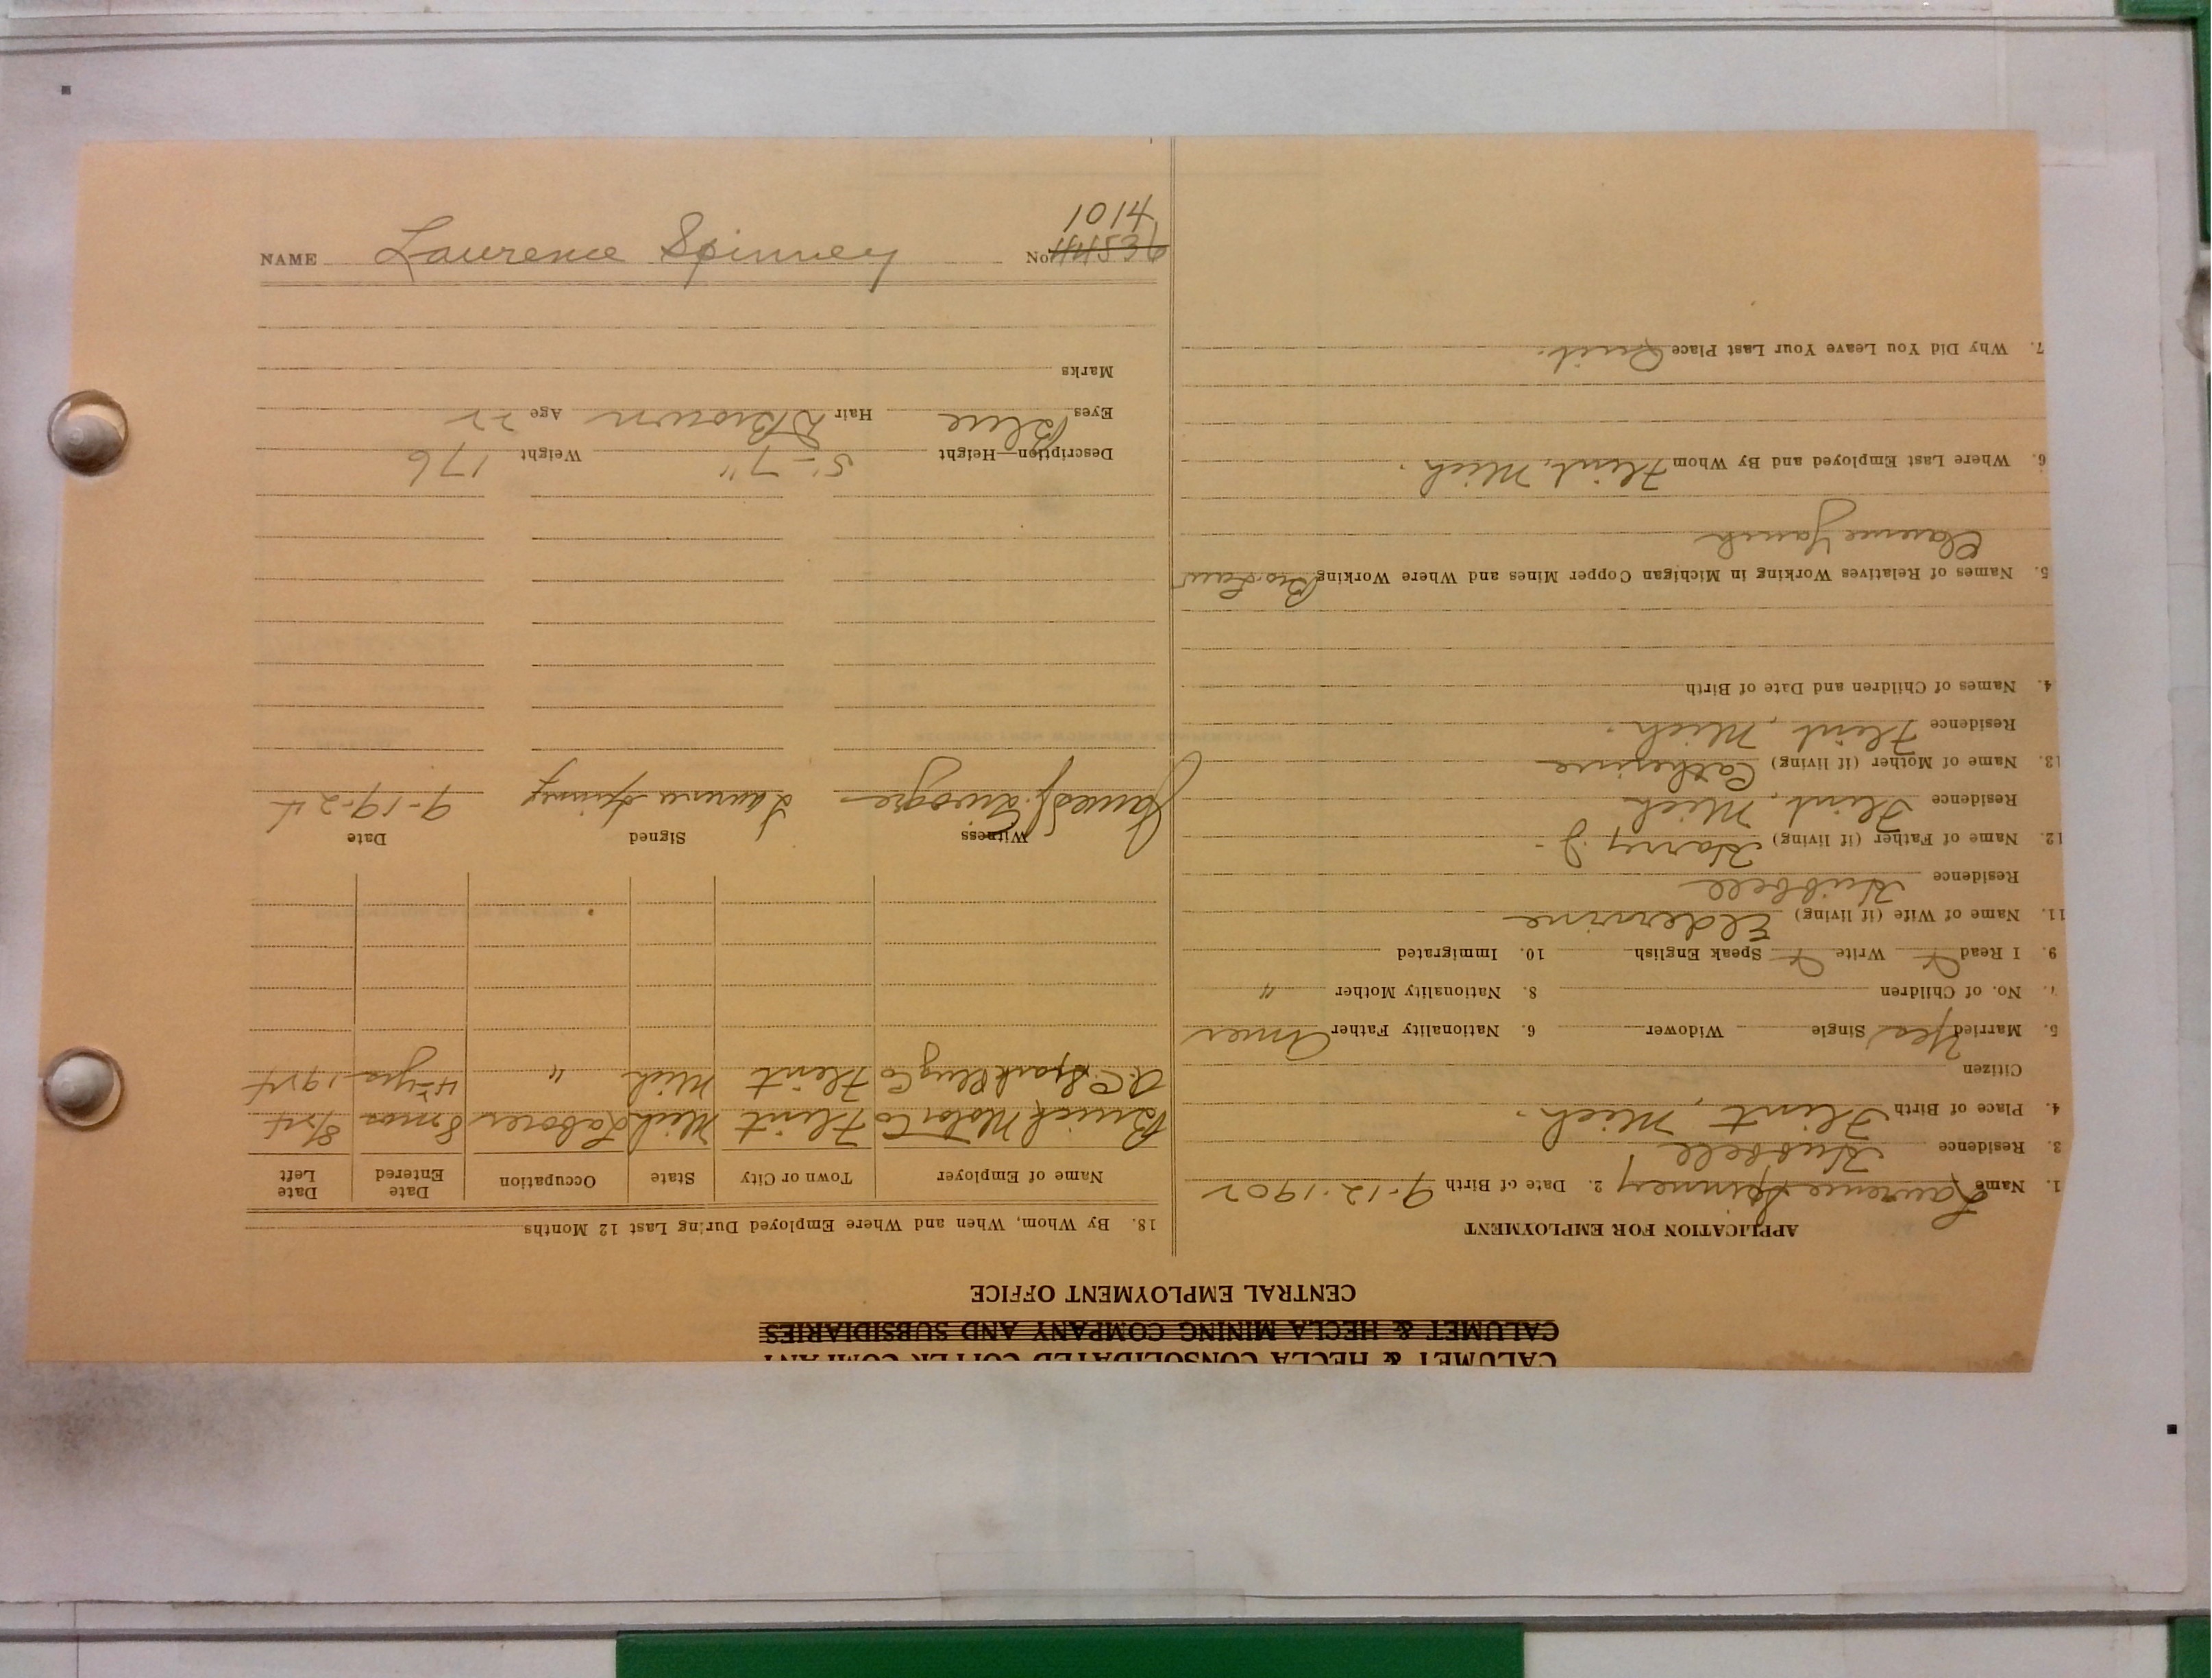 NAME Laurence Spinney No. 44536
1014
CALUMET & HECLA CONSOLIDATED COPPER COMPANY
CALUMET & HECLA MINING COMPANY AND SUBSIDIARIES
CENTRAL EMPLOYMENT OFFICE
APPLICATION FOR EMPLOYMENT
1. Name Laurence Spinney 2. Date of Birth 9-12-1902
3. Residence Hubbell
4. Place of Birth Flint, Mich.
Citizen
5. Married Yes Single Widower 6. Nationality Father Amer
7. No. of Children 8. Nationality Mother "
9. I Read Write Speak English 10. Immigrated
11. Name of Wife (if living) Eldervine
Residence Hubbell
12. Name of Father (if living) Harry J.
Residence Flint, Mich
13. Name of Mother (if living) Catherine
Residence Flint, Mich.
4. Names of Children and Date of Birth
5. Names of Relatives Working in Michigan Copper Mines and Where Working Bro-Law
Clarence
6. Where Last Employed and By Whom Flint, Mich.
7. Why Did You Leave Your Last Place Quit.
18. By Whom, When and Where Employed During Last 12 Months
Name of Employer Town or City State Occupation Date Entered Date Left
Buick Motor Co Flint Mich Laborer 8 mos 8/24
A.C. Spark Plug Co Flint Mich " yrs 1924
Witness Signed Date
James Laurence Spinney 9-19-24
Description—Height 5'-7" Weight 176
Eyes Blue Hair D Brown Age 22
Marks